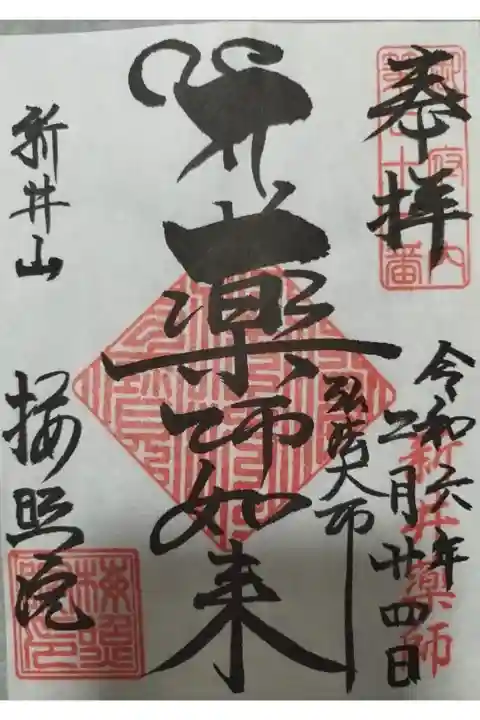 奉拝
令和六年
二月廿四日
新井薬師
薬師如来
弘法大师
新井山
梅照院